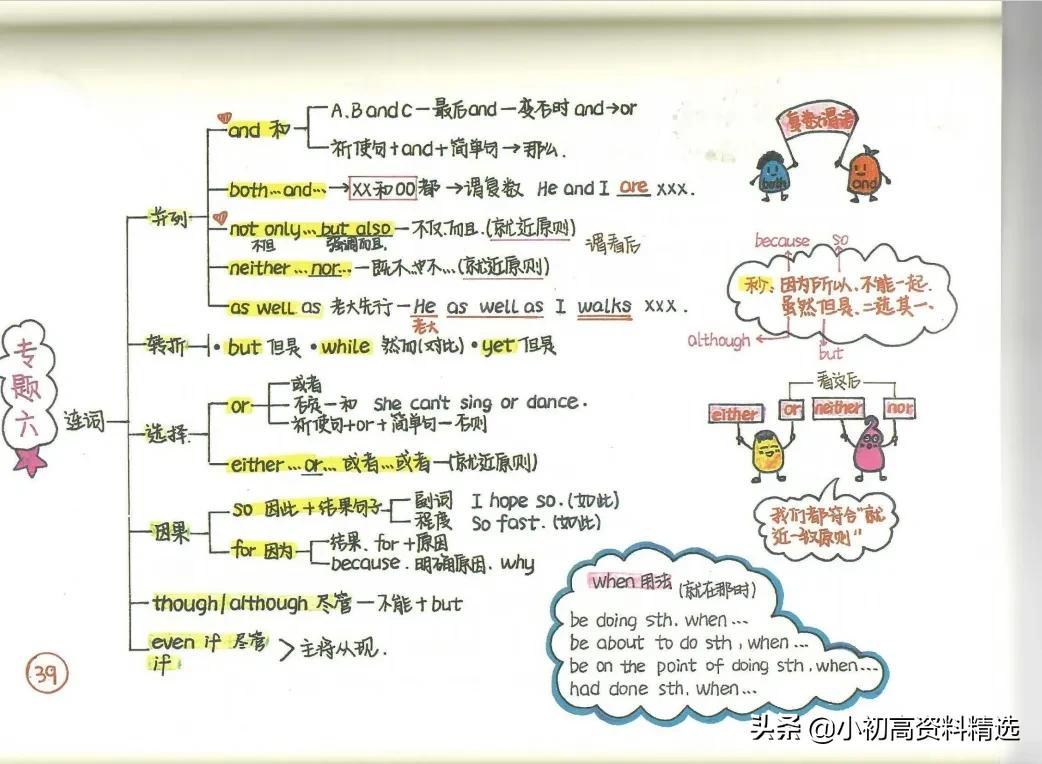 专题六
连词
并列
and 和
A、B and C — 最后and — 变否时 and→or
祈使句+and+简单句→那么.
both…and… → XX和OO 都 → 谓复数 He and I are xxx.
not only…but also — 不仅.而且.(就近原则)
不但 强调而且.
谓看后
neither…nor… — 既不.也不…(就近原则)
as well as 老大先行 — He as well as I walks xxx.
老大
转折
·but 但是 ·while 然而(对比) ·yet 但是
选择
or
或者
否定—和 She can't sing or dance.
祈使句+or+简单句—否则
either…or… 或者…或者—(就近原则)
因果
so 因此+结果句子
副词 I hope so.(如此)
程度 So fast.(如此)
for 因为
结果、for+原因
because.明确原因、why
though/although 尽管 — 不能+but
even if 尽管
if
主将从现.
39
复数谓语
both
and
because
so
秒:因为所以、不能一起.
虽然但是、二选其一、
although
but
看这后
either
or
neither
nor
我们都符合"就
近一致原则"
when 用法 (就在那时)
be doing sth, when…
be about to do sth, when…
be on the point of doing sth, when…
had done sth, when…
头条 @小初高资料精选